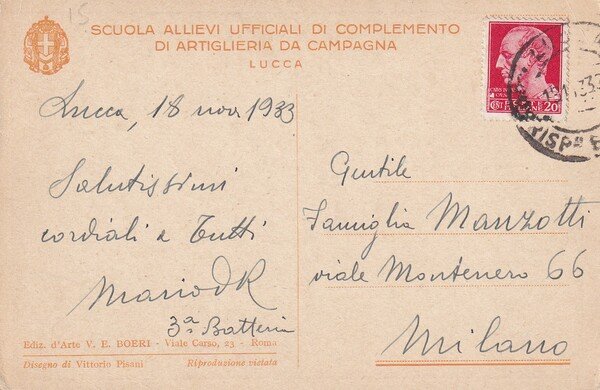 15
SCUOLA ALLIEVI UFFICIALI DI COMPLEMENTO
DI ARTIGLIERIA DA CAMPAGNA
LUCCA
Lucca, 18 nov 1933
Salutissimi
cordiali a Tutti
Mario DR
3ª Batteria
Ediz. d'Arte V. E. BOERI - Viale Carso, 23 - Roma
Disegno di Vittorio Pisani Riproduzione vietata
CENT 20
Gentile
Famiglia Manzotti
viale Montenero 66
Milano